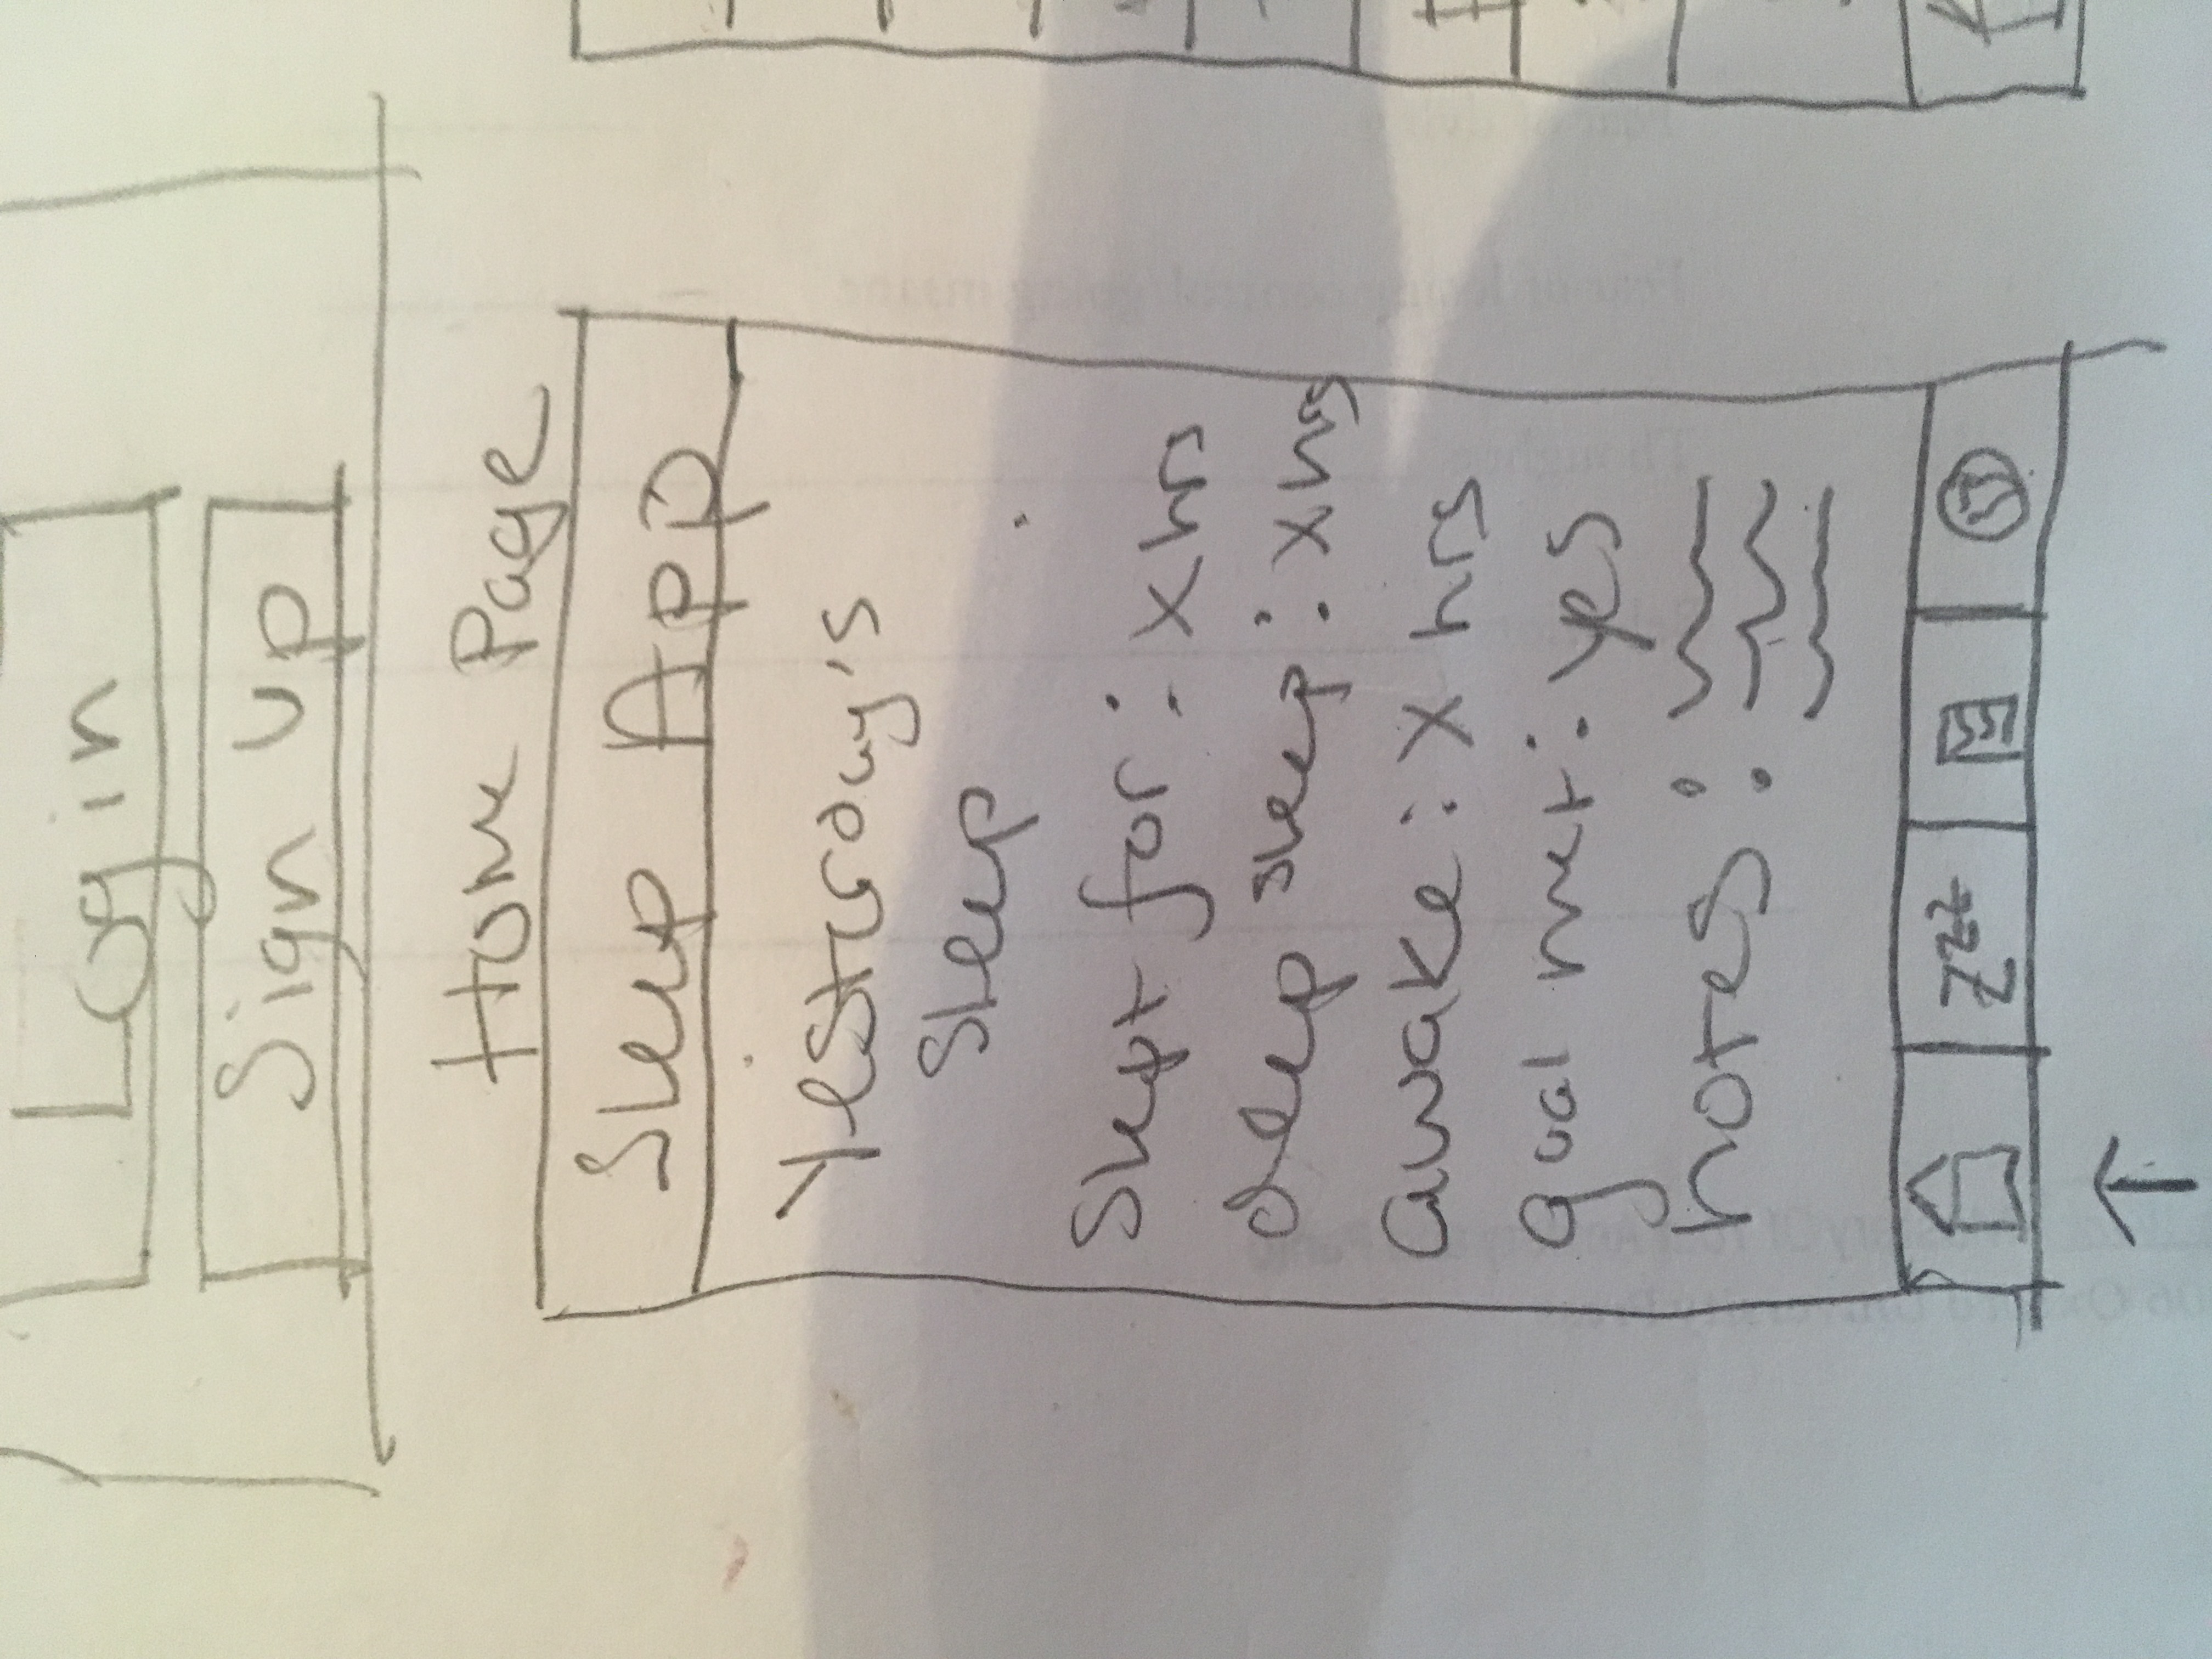 Login
Sign Up
Home Page
Sleep App
Yesterday's
Sleep
Slept for: x hrs
deep sleep: x hrs
awake: x hrs
goal met: yes
notes:
zzz